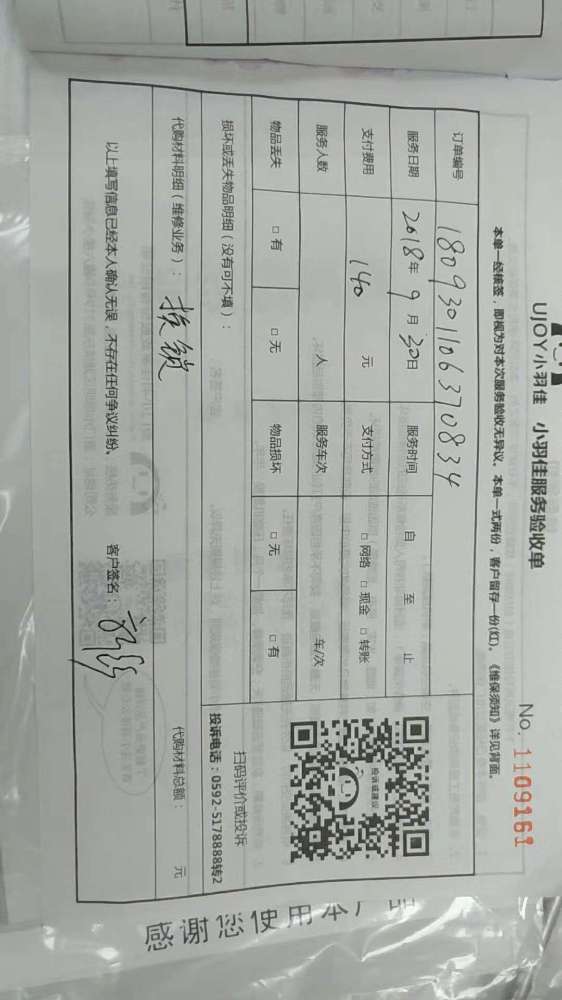 UJOY小羽佳 小羽佳服务验收单
No. 1109161
本单一经核签，即视为对本次服务验收无异议。本单一式两份，客户留存一份(红)。《维保须知》详见背面。
订单编号 180930110637 0834
服务日期 2018年9月30日 服务时间 自 至 止
支付费用 140 元 支付方式 □ 网络 □ 现金 □ 转账
服务人数 人 服务车次 车/次
物品丢失 □ 有 □ 无 物品损坏 □ 无 □ 有
投诉或建议
扫码评价或投诉
投诉电话：0592-5178888转2
损坏或丢失物品明细（没有可不填）：
代购材料明细（维修业务）： 换锁 代购材料总额： 元
以上填写信息已经本人确认无误，不存在任何争议纠纷。 客户签名：
感谢您使用本产品